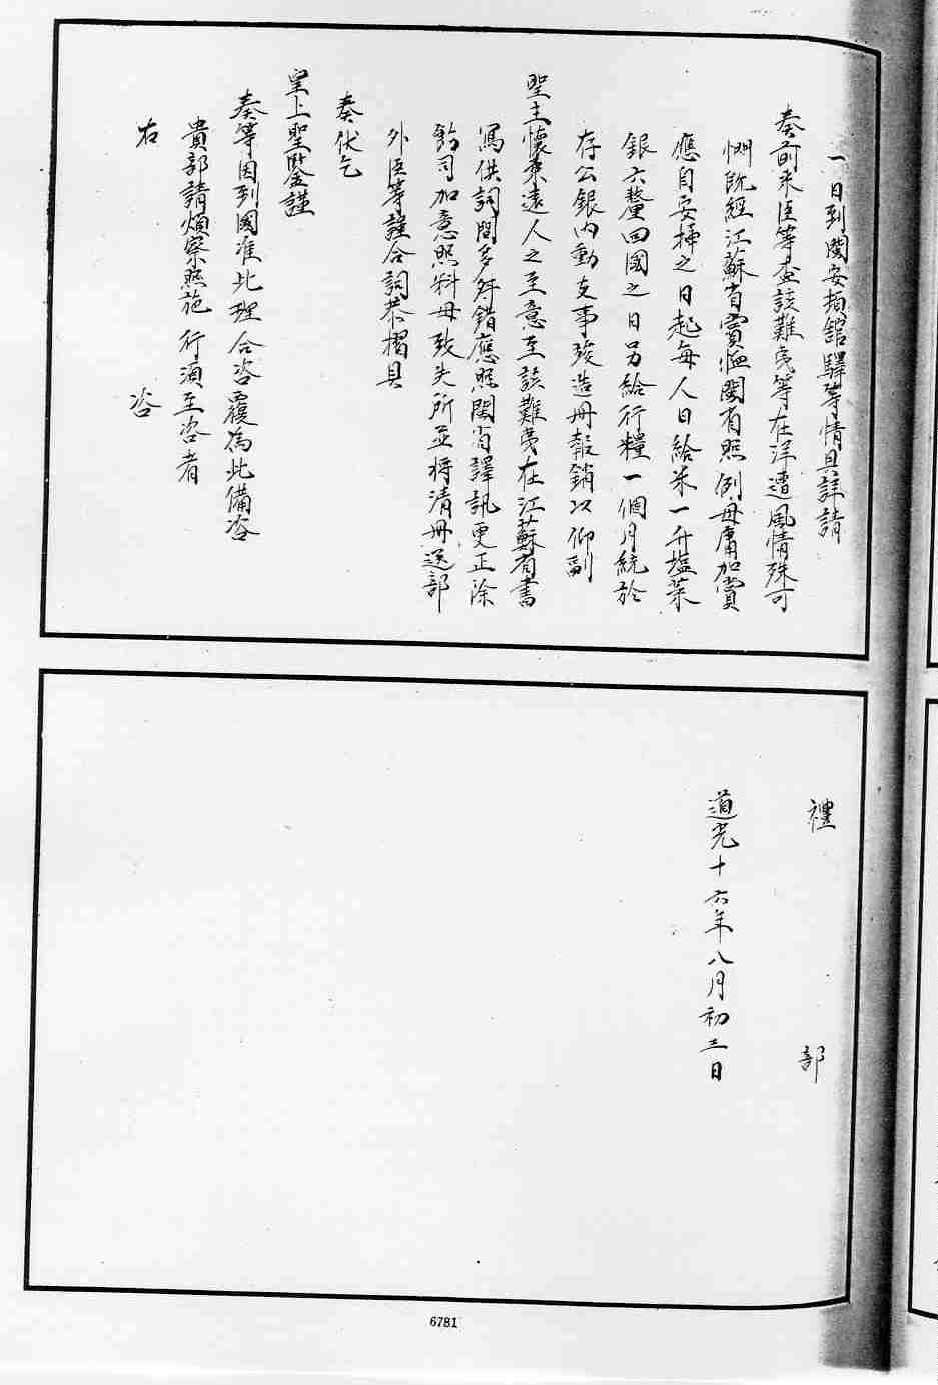 一日到閩安插館驛等情具詳請
奏前来臣等查該難夷等在洋遭風情殊可
憫既經江蘇省賞恤閩省照例毋庸加賞
應自安揷之日起每人日給米一升塩菜
銀六釐回國之日另給行糧一個月統於
存公銀内動支事竣造冊報銷以仰副
聖主懷柔遠人之至意至該難夷在江蘇省書
寫供詞間多舛錯應照閩省譯訊更正除
飭司加意照料毋致失所並将清冊送部
外臣等謹合詞恭摺具
奏伏乞
皇上聖鑒謹
奏等因到國准此理合咨覆為此備咨
貴部請煩察照施行須至咨者
右 咨
禮 部
道光十六年八月初三日
6781